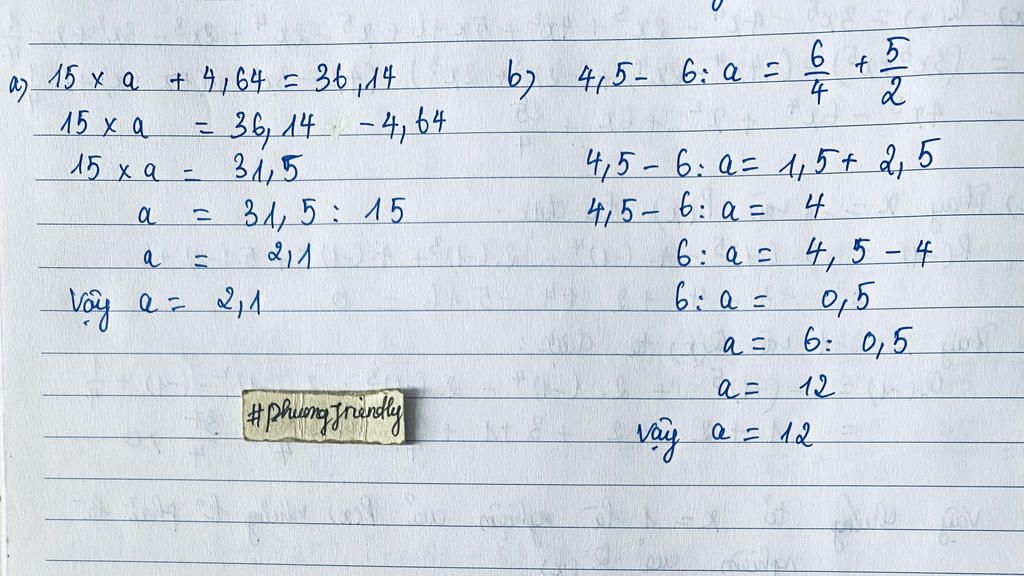 a) 15 x a + 4,64 = 36,14
15 x a = 36,14 - 4,64
15 x a = 31,5
a = 31,5 : 15
a = 2,1
Vậy a = 2,1
b) 4,5 - 6 : a = 6/4 + 5/2
4,5 - 6 : a = 1,5 + 2,5
4,5 - 6 : a = 4
6 : a = 4,5 - 4
6 : a = 0,5
a = 6 : 0,5
a = 12
Vậy a = 12
#phuongfriendly